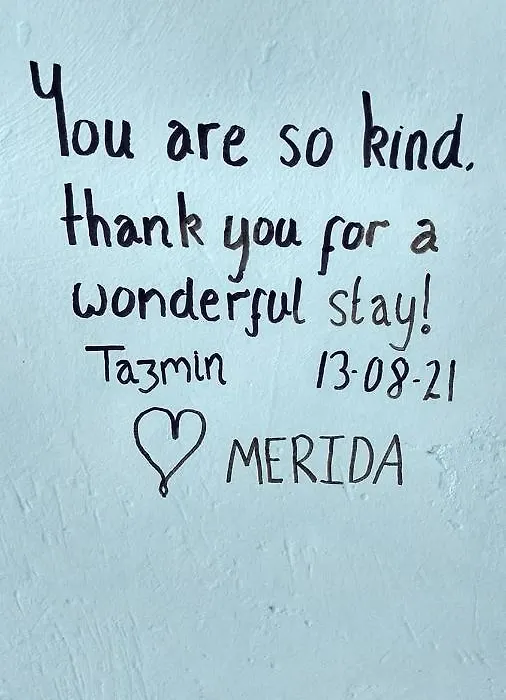 You are so kind.
thank you for a
wonderful stay!
Tazmin 13-08-21
MERIDA